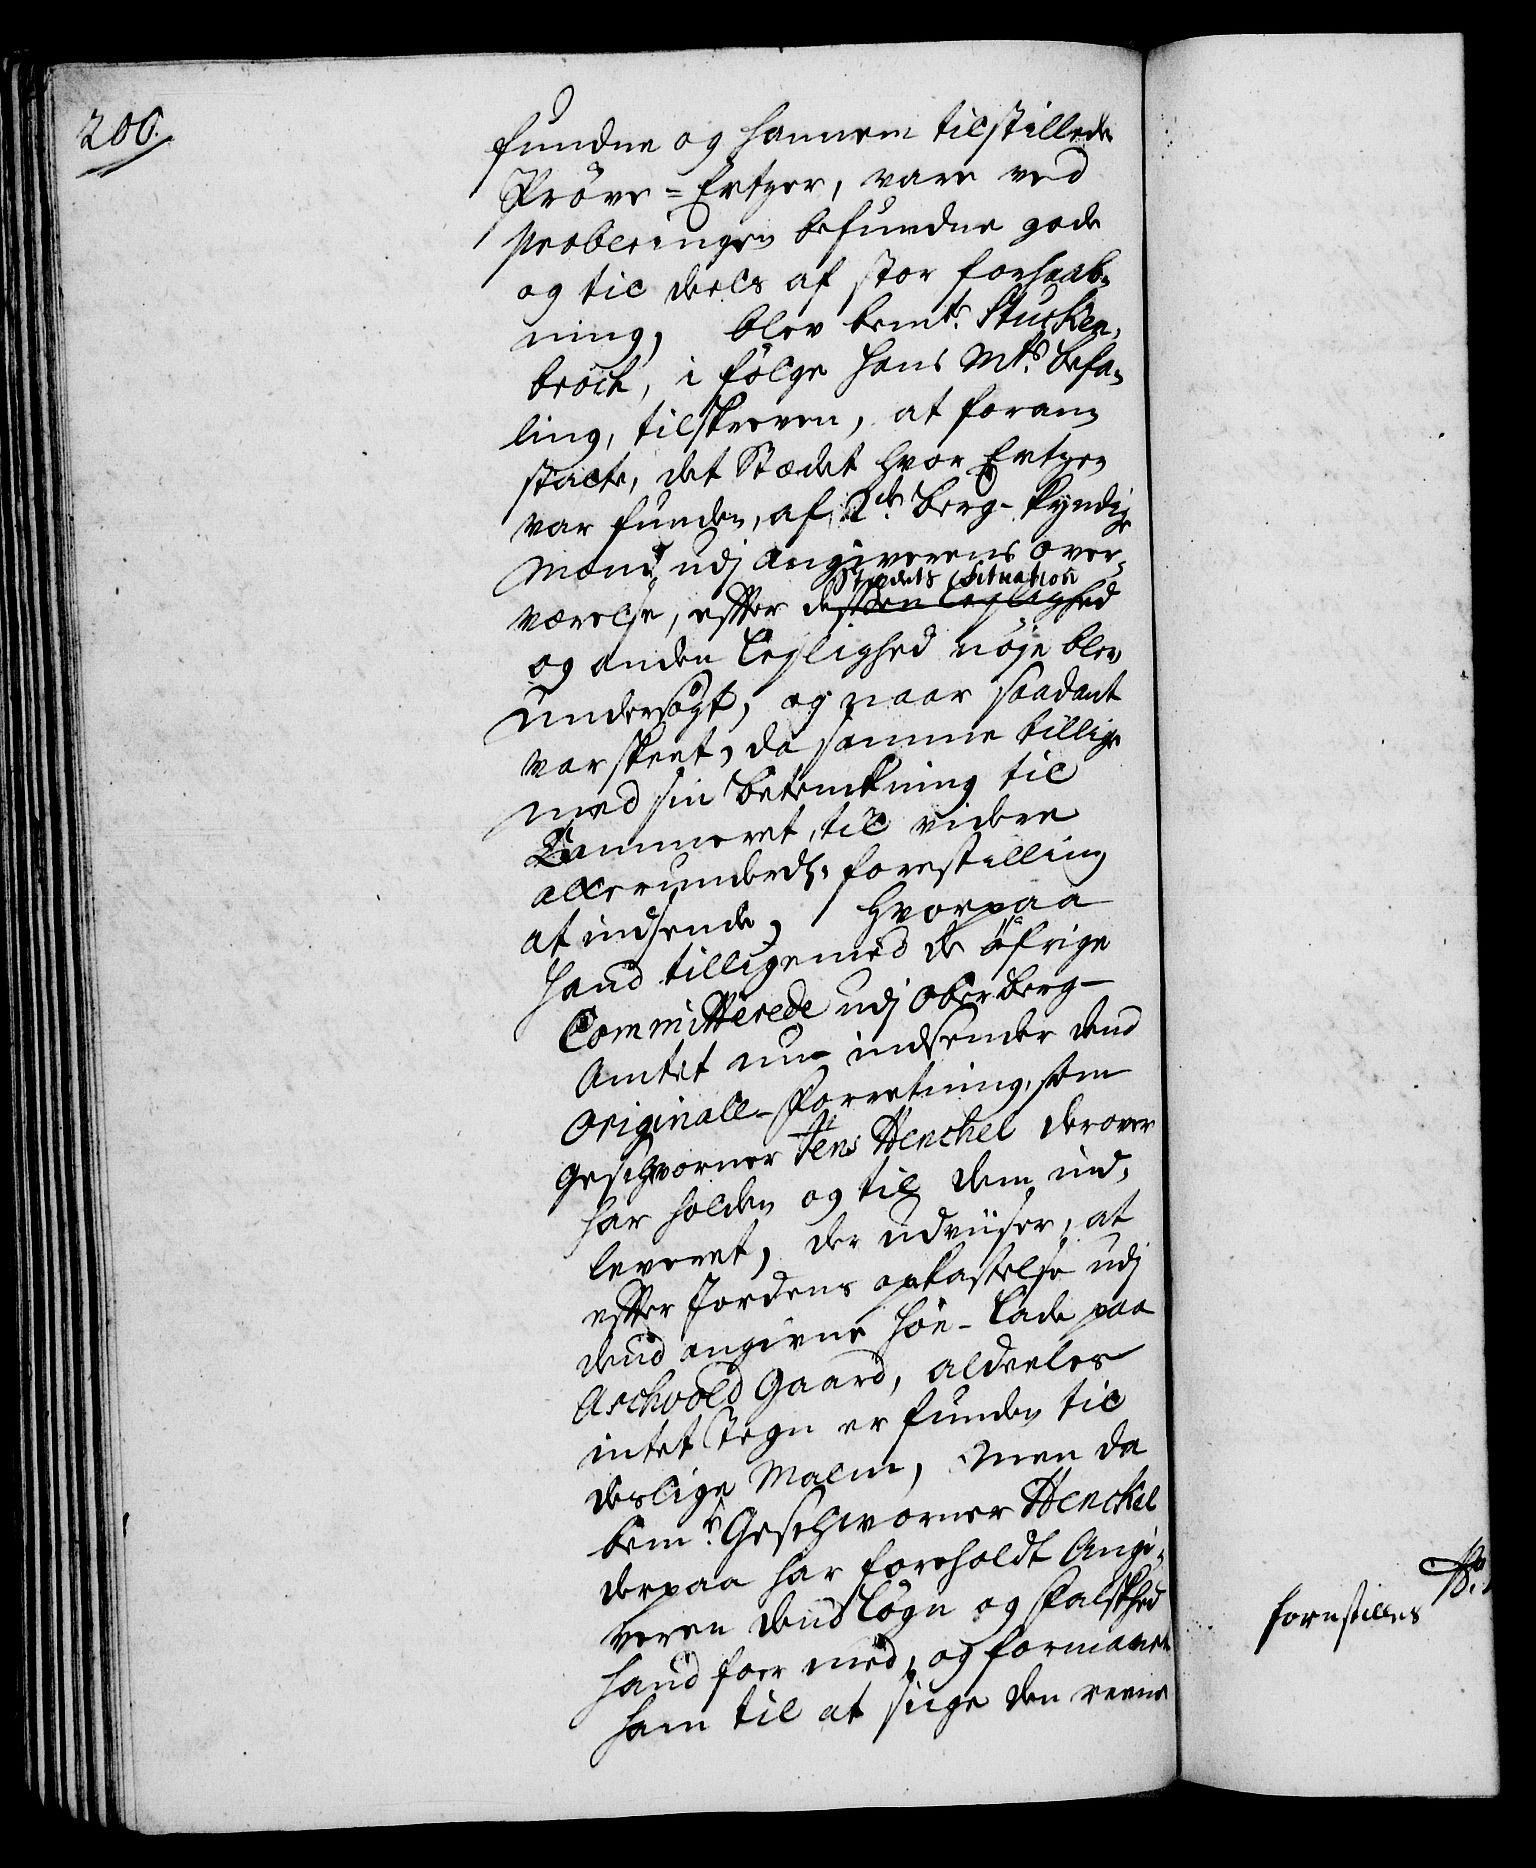 200.
fundne og hannem tilstillede
Prøve=Ertzer, vare ved
proberingen befundne gode
og til deels af stor forhaab-
ning, blev bemte. Stucken-
broch, i følge Hans Mts. befa-
ling, tilskreven, at foran-
stalte, det Stædet hvor Ertzen
var funden, af 2de. berg-kyndige
Mænd udj Angiverens over-
værelse, efter Stædets Situation
dessen Leylighed
og anden Leylighed nøje blev
undersøgt, og naar saadant
var skeet, da samme tillige
med sin betenkning til
Cammeret, til videre
allerunderds. forestilling
at indsende, Hvorpaa
Hand tilligemed de øfrige
Committerede udj Oberberg-
Amtet nu indsender dend
Originall-Forretning, som
Geschworner Jens Henchel derover
har holden og til dem ind-
leveret, der udviiser, at
efter Jordens opkastelse udj
dend angivne Høe-Lade paa
Aschvold Gaard, aldeeles
intet Tegn er funden til
deslige Malm, Men da
bemte. Geschworner Henckel
derpaa har foreholdt Angi-
veren dend Løgn og Falskhed
hand foer med, og formanet
ham til at siige den reene
forestilles